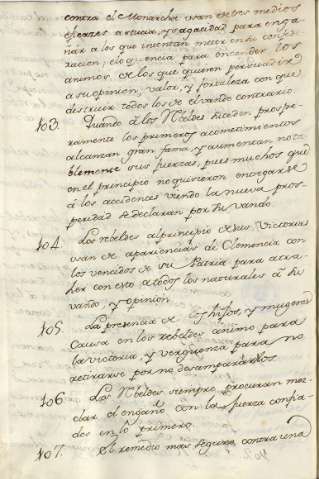 contra el Monarcha usan de tres medios
eficazes astucia, y sagacidad para enga
ñar a los que intentan meter en su conju
racion; eloquencia para encender los
animos de los que quieren persuadir
a su opinion; valor, y fortaleza con que
destruir todos los de el vando contrario.
103. Quando â los Rebeldes suceden prospe
ramente los primeros acometimientos
alcanzan gran fama, y aumentan nota
blemente sus fuerzas, pues muchos que
en el principio no quisieron encargarse
â los accidentes viendo la nueva pros
peridad se declaran por su vando.
104. Los rebeldes al principio de sus Victorias
usan de apariencias de Clemencia con
los vencidos de su Patria para atra
her con esto a todos los naturales â su
vando, y opinion.
105. La presencia de los hijos, y mugeres
Causa en los rebeldes animo para
la victoria, y verguenza para no
retirarse por no desampararlos
106. Los Rebeldes siempre procuran mez
clar el engaño con la fuerza confia
dos en lo primero.
107. El remedio mas seguro contra una